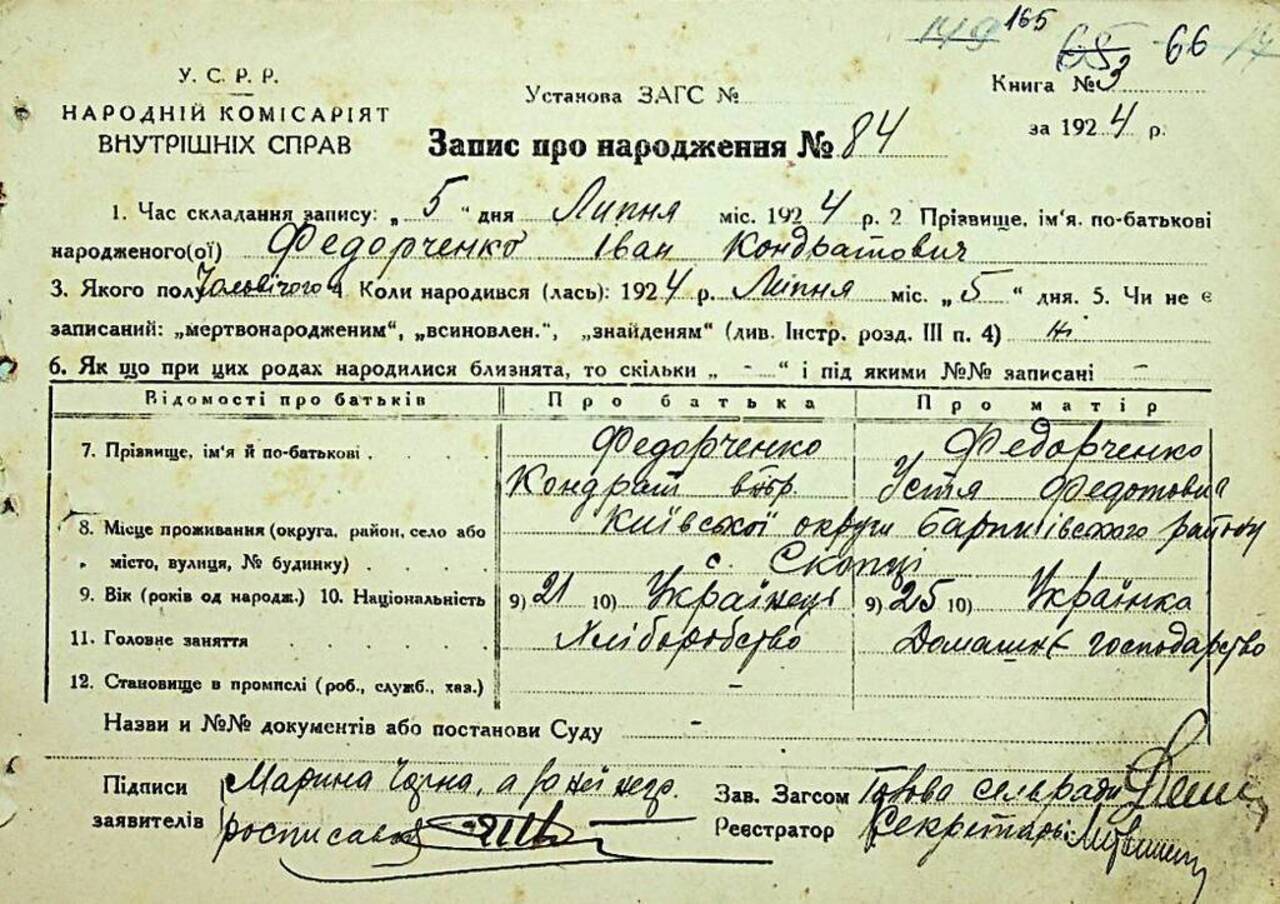 149 165 65 66
У. С. Р. Р.
НАРОДНІЙ КОМІСАРІЯТ
ВНУТРІШНІХ СПРАВ
Установа ЗАГС №
Книга № 3
за 1924 р.
Запис про народження № 84
1. Час складання запису: „ 5 “ дня Липня міс. 1924 р. 2 Прізвище, ім'я. по-батькові
народженого(ої) Федорченко Іван Кондратович
3. Якого полу Чоловічого 4 Коли народився (лась): 1924 р. Липня міс. „ 5 “ дня. 5. Чи не є
записаний: „мертвонародженим“, „всиновлен.", „знайденям“ (див. Інстр. розд. III п. 4) ні
6. Як що при цих родах народилися близнята, то скільки „ - “ і під якими №№ записані -
Відомості про батьків Про батька Про матір
7. Прізвище, ім'я й по-батькові . . . . Федорченко Федорченко
Кондрат Устя Федотовна
8. Місце проживання (округа, район, село або Київської округи Баришівського району
місто, вулиця, № будинку) . . . . с. Скопці
9. Вік (років од народж.) 10. Національність 9) 21 10) Українець 9) 25 10) Українка
11. Головне заняття . . . . . . Хліборобство Домашнє господарство
12. Становище в промислі (роб., служб., хаз.) -
Назви и №№ документів або постанови Суду -
Підписи Марина Чорна, а за неї негр. Зав. Загсом Голова сельради
заявителів росписався Реєстратор Секретарь